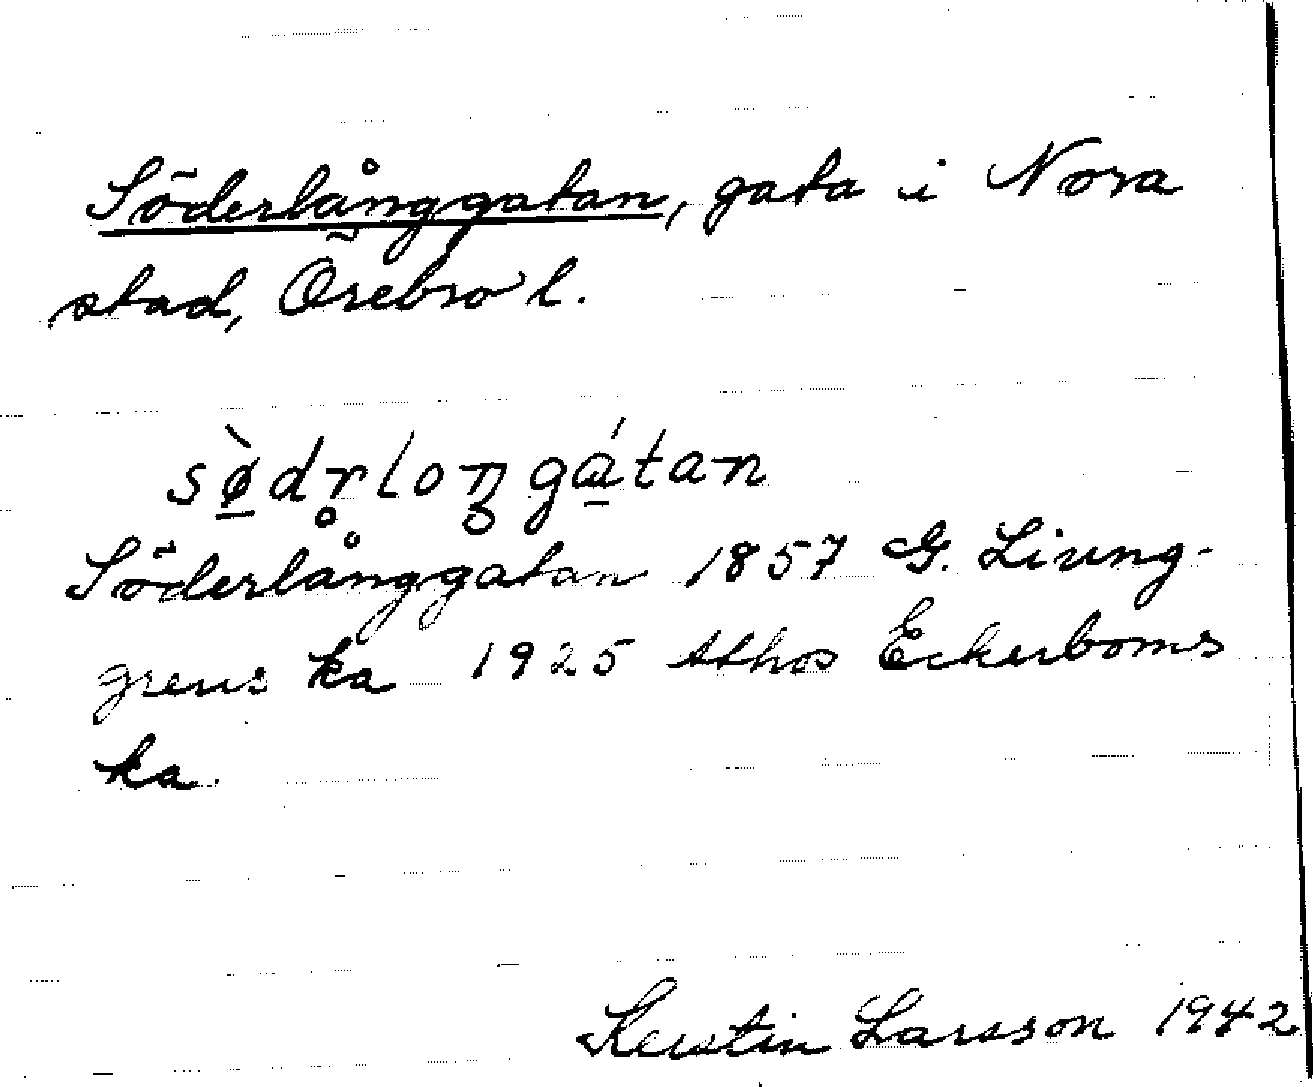 Söderlånggatan, gata i Nora
stad, Örebro l.
sø̠̀dr̥loŋgá̠tan
Söderlånggatan 1857 G. Liung-
grens ka 1925 Athos Eckerboms
ka.
Kerstin Larsson 1942